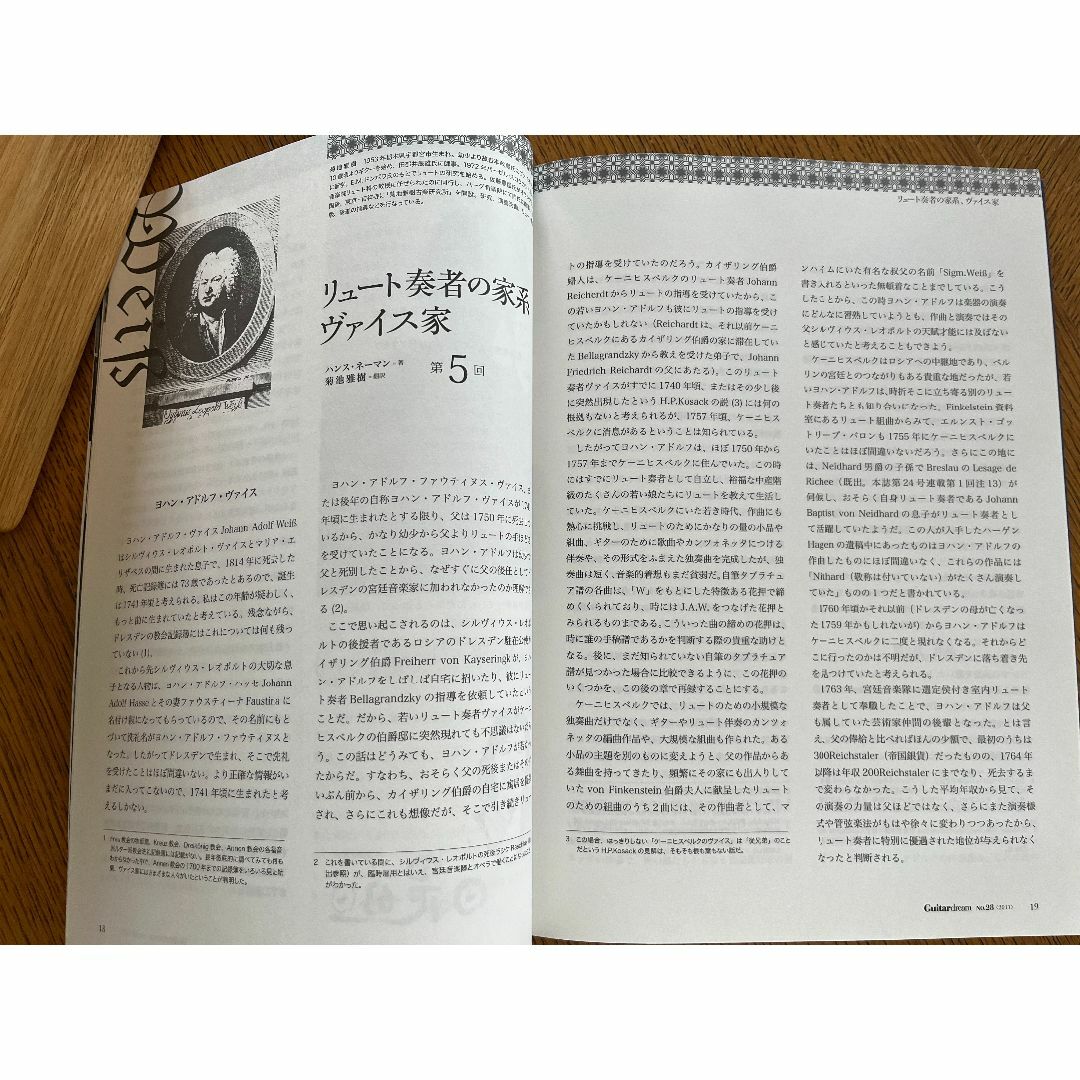 Weiß
リュート奏者の家系、
ヴァイス家
ハンス・ネーマン・著
菊池雅樹・翻訳
第5回
ヨハン・アドルフ・ヴァイス
ヨハン・アドルフ・ヴァイス Johann Adolf Weiß
はシルヴィウス・レオポルト・ヴァイスとマリア・エ
リザベスの間に生まれた息子で、1814年に死去した
時、死亡記録簿には73歳であったとあるので、誕生
は1741年頃と考えられる。私はこの年齢が疑わしく、
もっと前に生まれていたと考えている。残念ながら、
ドレスデンの教会記録簿にはこれについては何も残っ
ていない(1)。
これから先シルヴィウス・レオポルトの大切な息
子となる人物は、ヨハン・アドルフ・ハッセ Johann
Adolf Hasse とその妻ファウスティーナ Faustina に
名付け親になってもらっているので、その名前にもと
づいて洗礼名がヨハン・アドルフ・ファウティヌスと
なった。したがってドレスデンで生まれ、そこで洗礼
を受けたことはほぼ間違いない。より正確な情報がい
まだに入ってこないので、1741年頃に生まれたと考
えるしかない。
ヨハン・アドルフ・ファウティヌス・ヴァイス、
たは後年の自称ヨハン・アドルフ・ヴァイスが
年頃に生まれたとする限り、父は1750年に死
いるから、かなり幼少から父よりリュートの手ほど
を受けていたことになる。ヨハン・アドルフは
父と死別したことから、なぜすぐに父の後任として
レスデンの宮廷音楽家に加われなかったのか理解
る(2)。
ここで思い起こされるのは、シルヴィウス・レオ
ルトの後援者であるロシアのドレスデン駐在公
イザリング伯爵 Freiherr von Kayseringk が、
ン・アドルフをしばしば自宅に招いたり、彼にリュー
ト奏者 Bellagrandzky の指導を依頼していたという
ことだ。だから、若いリュート奏者ヴァイスがケー
ヒスベルクの伯爵邸に突然現れても不思議はない
う。この話はどうみても、ヨハン・アドルフが
たからだ。すなわち、おそらく父の死後または
いぶん前から、カイザリング伯爵の自宅に
され、さらにこれも想像だが、そこで引き続きリュー
2 これを書いている間に、シルヴィウス・レオポルトの死後
出参照)が、臨時雇用とはいえ、宮廷音楽隊とオペラで
がわかった。
18
リュート奏者の家系、ヴァイス家
トの指導を受けていたのだろう。カイザリング伯爵
婦人は、ケーニヒスベルクのリュート奏者 Johann
Reicherdt からリュートの指導を受けていたから、こ
の若いヨハン・アドルフも彼にリュートの指導を受け
ていたかもしれない（Reichardt は、それ以前ケーニ
ヒスベルクにあるカイザリング伯爵の家に滞在してい
た Bellagrandzky から教えを受けた弟子で、Johann
Friedrich Reichardt の父にあたる）。このリュート
奏者ヴァイスがすでに1740年頃、またはその少し後
に突然出現したという H.P.Kosack の説(3)には何の
根拠もないと考えられるが、1757年頃、ケーニヒス
ベルクに消息があるということは知られている。
したがってヨハン・アドルフは、ほぼ1750年から
1757年までケーニヒスベルクに住んでいた。この時
にはすでにリュート奏者として自立し、裕福な中産階
級のたくさんの若い娘たちにリュートを教えて生活し
ていた。ケーニヒスベルクにいた若き時代、作曲にも
熱心に挑戦し、リュートのためにかなりの量の小品や
組曲、ギターのために歌曲やカンツォネッタにつける
伴奏や、その形式をふまえた独奏曲を完成したが、独
奏曲は短く、音楽的着想もまだ貧弱だ。自筆タブラチュ
ア譜の各曲は、「W」をもとにした特徴ある花押で締
めくくられており、時にはJ.A.W.をつなげた花押と
みられるものまである。こういった曲の締めの花押は、
時に誰の手稿譜であるかを判断する際の貴重な助けと
なる。後に、まだ知られていない自筆のタブラチュア
譜が見つかった場合に比較できるように、この花押の
いくつかを、この後の章で再録することにする。
ケーニヒスベルクでは、リュートのための小規模な
独奏曲だけでなく、ギターやリュート伴奏のカンツォ
ネッタの編曲作品や、大規模な組曲も作られた。ある
小品の主題を別のものに変えようと、父の作品からあ
る舞曲を持ってきたり、頻繁にその家にも出入りして
いた von Finkenstein 伯爵夫人に献呈したリュート
のための組曲のうち2曲には、その作曲者として、マ
3 この場合、はっきりしない「ケーニヒスベルクのヴァイス」は「従兄弟」のこと
だという H.P.Kosack の見解は、そもそも根も葉もない話だ。
ンハイムにいた有名な叔父の名前「Sigm.Weiß」を
書き入れるといった無頓着なことまでしている。こう
したことから、この時ヨハン・アドルフは楽器の演奏
にどんなに習熟していようとも、作曲と演奏ではその
父シルヴィウス・レオポルトの天賦才能には及ばない
と感じていたと考えることもできよう。
ケーニヒスベルクはロシアへの中継地であり、ベルリ
ンの宮廷とのつながりもある貴重な地だったが、若
いヨハン・アドルフは、時折そこに立ち寄る別のリュ
ート奏者たちとも知り合いになった。Finkelstein 資料
室にあるリュート組曲からみて、エルンスト・ゴッ
トリープ・バロンも1755年にケーニヒスベルクに
いたことはほぼ間違いないだろう。さらにこの地に
は、Neidhard 男爵の子孫で Breslau の Lesage de
Richee（既出。本誌第24号連載第1回注13）が
伺候し、おそらく自身リュート奏者である Johann
Baptist von Neidhard の息子がリュート奏者とし
て活躍していたようだ。この人が入手したハーゲン
Hagen の遺稿中にあったものはヨハン・アドルフの
作曲したものにほぼ間違いなく、これらの作品には
「Nithard（敬称は付いていない）がたくさん演奏し
ていた」ものの1つだと書かれている。
1760年頃かそれ以前（ドレスデンの母が亡くなっ
た1759年かもしれないが）からヨハン・アドルフは
ケーニヒスベルクに二度と現れなくなる。それからど
こに行ったのかは不明だが、ドレスデンに落ち着き先
を見つけていたと考えられる。
1763年、宮廷音楽隊に選定侯付き室内リュート
奏者として奉職したことで、ヨハン・アドルフは父
も属していた芸術家仲間の後輩となった。とは言
え、父の俸給と比べればほんの少額で、最初のうちは
300Reichstaler（帝国銀貨）だったものの、1764年
以降は年収200Reichstaler にまでなり、死去するま
で変わらなかった。こうした平均年収から見て、そ
の演奏の力量は父ほどではなく、さらにまた演奏様
式や管弦楽法がもはや徐々に変わりつつあったから、
リュート奏者に特別に優遇された地位が与えられなく
なったと判断される。
Guitar dream No.28（2011） 19